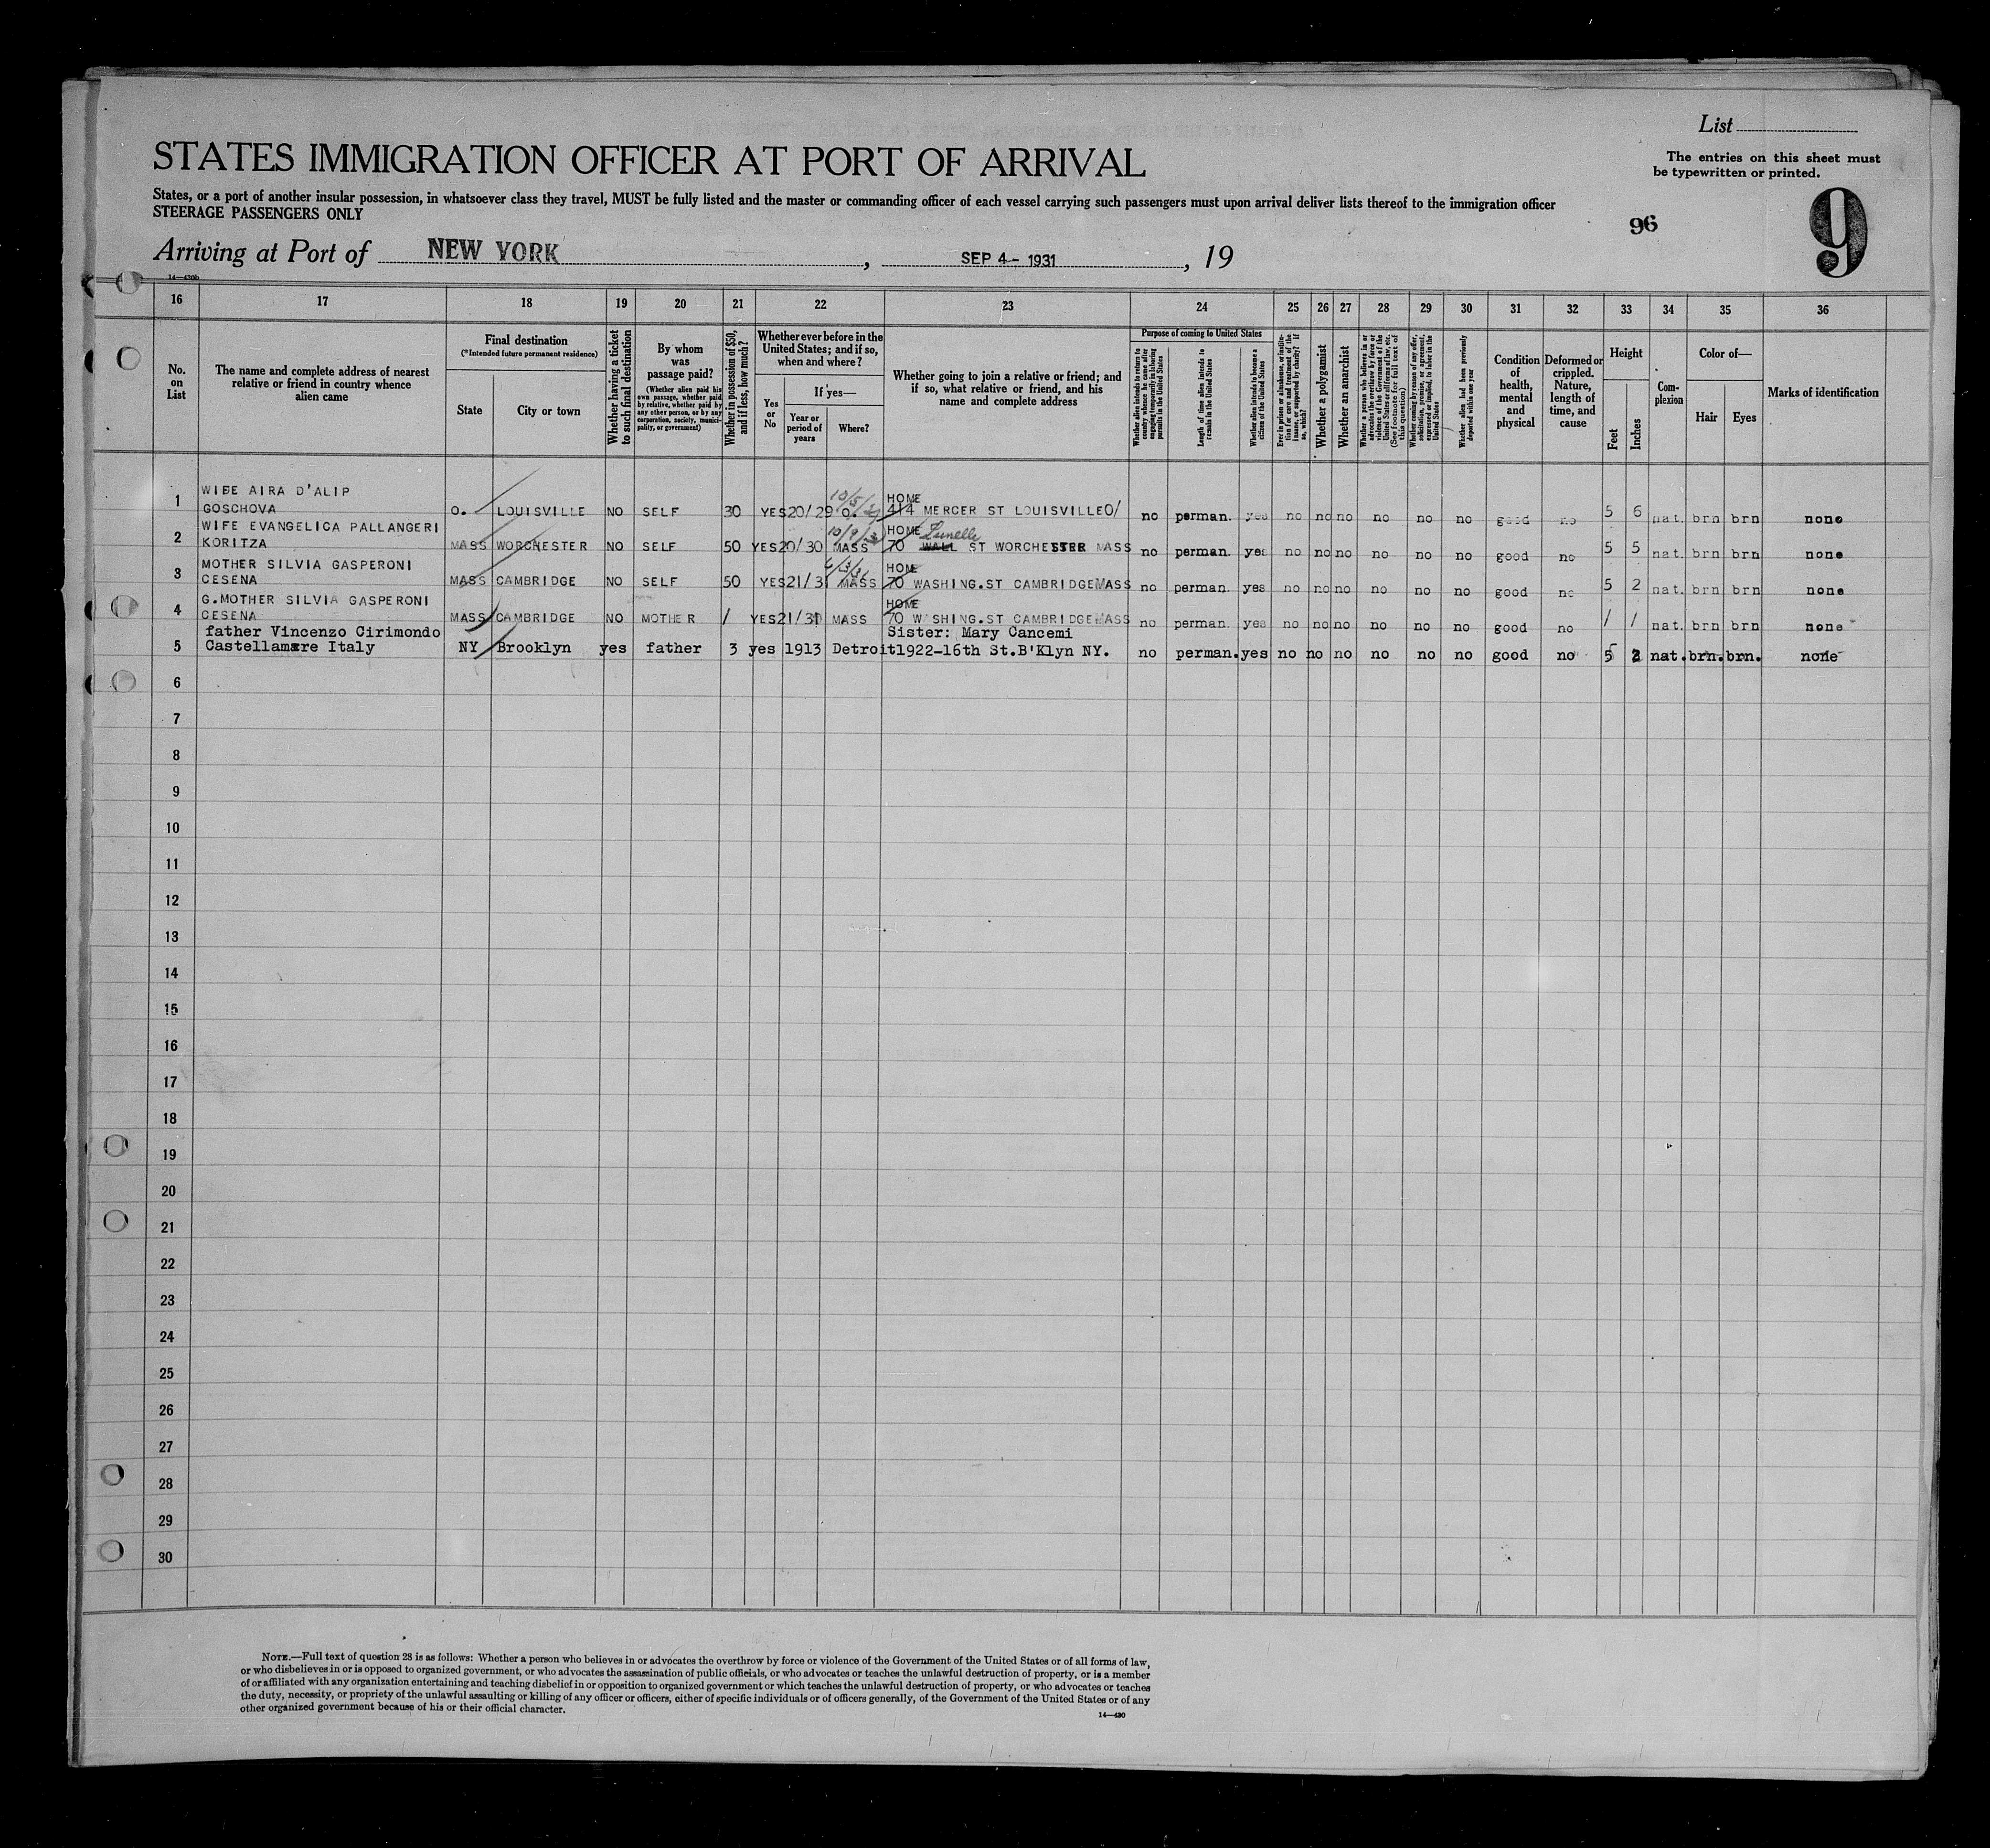 List
The entries on this sheet must
be typewritten or printed.
STATES IMMIGRATION OFFICER AT PORT OF ARRIVAL
States, or a port of another insular possession, in whatsoever class they travel, MUST be fully listed and the master or commanding officer of each vessel carrying such passengers must upon arrival deliver lists thereof to the immigration officer
STEERAGE PASSENGERS ONLY
96
9
Arriving at Port of NEW YORK, SEP 4 - 1931, 19
14—430b
16 17 18 19 20 21 22 23 24 25 26 27 28 29 30 31 32 33 34 35 36
No.
on
List
The name and complete address of nearest
relative or friend in country whence
alien came
Final destination
(*Intended future permanent residence)
State
City or town
Whether having a ticket
to such final destination
By whom
was
passage paid?
(Whether alien paid his
own passage, whether paid
by relative, whether paid by
any other person, or by any
corporation, society, munici-
pality, or government)
Whether in possession of $50,
and if less, how much?
Whether ever before in the
United States; and if so,
when and where?
Yes
or
No
If yes—
Year or
period of
years
Where?
Whether going to join a relative or friend; and
if so, what relative or friend, and his
name and complete address
Purpose of coming to United States
Whether alien intends to return to
country whence he came after
engaging temporarily in laboring
pursuits in the United States
Length of time alien intends to
remain in the United States
Whether alien intends to become a
citizen of the United States
Ever in prison or almshouse, or institu-
tion for care and treatment of the
insane, or supported by charity? If
so, which?
Whether a polygamist
Whether an anarchist
Whether a person who believes in or
advocates the overthrow by force or
violence of the Government of the
United States or all forms of law, etc.
(See footnote for full text of
this question)
Whether coming by reason of any offer,
solicitation, promise, or agreement,
expressed or implied, to labor in the
United States
Whether alien had been previously
deported within one year
Condition
of
health,
mental
and
physical
Deformed or
crippled.
Nature,
length of
time, and
cause
Height
Feet
Inches
Com-
plexion
Color of—
Hair
Eyes
Marks of identification
WIFE AIRA D'ALIP HOME
1 GOSCHOVA O. LOUISVILLE NO SELF 30 YES 20/29 O. 414 MERCER ST LOUISVILLE O/ no perman. yes no no no no no no good no 5 6 nat. brn brn none
WIFE EVANGELICA PALLANGERI HOME
2 KORITZA MASS WORCHESTER NO SELF 50 YES 20/30 MASS 70 WALL ST WORCHESTER MASS no perman. yes no no no no no no good no 5 5 nat. brn brn none
MOTHER SILVIA GASPERONI HOME
3 CESENA MASS CAMBRIDGE NO SELF 50 YES 21/31 MASS 70 WASHING.ST CAMBRIDGE MASS no perman. yes no no no no no no good no 5 2 nat. brn brn none
G.MOTHER SILVIA GASPERONI HOME
4 CESENA MASS CAMBRIDGE NO MOTHER / YES 21/31 MASS 70 WASHING.ST CAMBRIDGE MASS no perman. yes no no no no no no good no / / nat. brn brn none
father Vincenzo Cirimondo Sister: Mary Cancemi
5 Castellamare Italy NY Brooklyn yes father 3 yes 1913 Detroit 1922-16th St.B'Klyn NY. no perman. yes no no no no no no good no 5 2 nat. brn. brn. none
6
7
8
9
10
11
12
13
14
15
16
17
18
19
20
21
22
23
24
25
26
27
28
29
30
NOTE.—Full text of question 28 is as follows: Whether a person who believes in or advocates the overthrow by force or violence of the Government of the United States or of all forms of law,
or who disbelieves in or is opposed to organized government, or who advocates the assassination of public officials, or who advocates or teaches the unlawful destruction of property, or is a member
of or affiliated with any organization entertaining and teaching disbelief in or opposition to organized government or which teaches the unlawful destruction of property, or who advocates or teaches
the duty, necessity, or propriety of the unlawful assaulting or killing of any officer or officers, either of specific individuals or of officers generally, of the Government of the United States or of any
other organized government because of his or their official character.
14—430